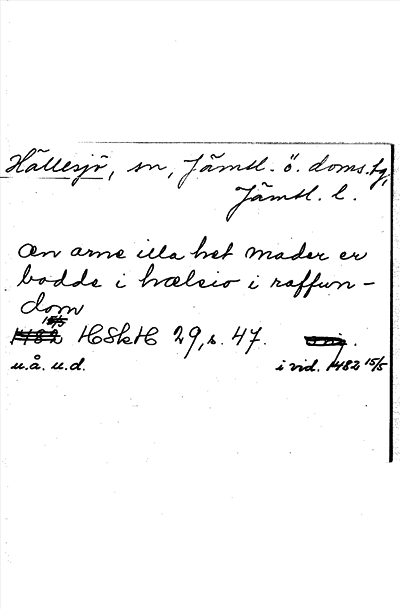 Hällesjö, sn, Jämtl. ö. doms.tg,
Jämtl. l.
æn arne illa het madær er
bodde i hælsio i raffun-
dom
HSkH 29, s. 47.
u.å. u.d. i vid. 1482 15/5